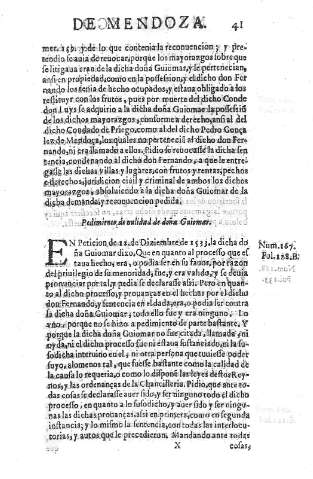 DE MENDOZA. 41
mer. a 59. y de lo que contenia la reconuencion y y pre-
tendio se auia de reuocar, porque los mayorazgos sobre que
se litigaua eran de la dicha doña Guiomar, y se pertenecian,
ansi en propiedad, como en la possession, y el dicho don Fer
nando los tenia de hecho ocupados, y estaua obligado a los
restituyr con los frutos, pues por muerte del dicho Conde
don Luys se adquirio a la dicha doña Guiomar la possessiō
de los dichos mayorazgos, conforme a derecho, ansi al del
dicho Condado de Priego, como al del dicho Pedro Gonça
lez de Mendoça, los quales no pertenecia al dicho don Fer-
nando, ni era llamado a ellos. Pidio se reuocasse la dicha sen
tencia, condenando al dicho don Fernando, a que le entre-
gasse las dichas villas y lugares, con frutos y rentas, pechos
e derechos, jurisdicion ciuil y criminal de ambos los dichos
mayorazgos, absoluiendo a la dicha doña Guiomar de la
dicha demanda, y reconuencion pedida.
Pedimiento, de nulidad de doña Guiomar.
EN Peticion, de 22. de Diziembre de 1533. la dicha do
ña Guiomar dixo, Que en quanto al processo que es
taua hecho, era, o podia ser en su fauor, por razon
del priuilegio de su menoridad, fue, y era valido, y se deuia
pronunciar por tal, y pedia se declarasse assi. Pero en quanto
al dicho processo, y prouanças en el hechas por el dicho
don Fernando, y sentencia en el dada, era, o podia ser contra
la dicha doña Guiomar, todo ello fue y era ninguno. Lo
vno, porque no se hizo a pedimiento de parte bastante. Y
porque la dicha doña Guiomar no fue citada, llamada, ni
oyda, ni el dicho processo fue ni estaua sustanciado, ni la su-
sodicha interuino en el, ni otra persona que tuuiesse poder
suyo, alomenos tal, que fuesse bastante como la calidad de
la causa lo requeria, o como lo disponē las leyes destos Rey-
nos, y las ordenanças de la Chancilleria. Pidio, que ante to-
das cosas se declarasse auer sido, y ser ninguno todo el dicho
processo, en quanto a lo susodicho, y auer sido y ser ningu-
nas las dichas prouanças, assi en primera, como en segunda
instancia; y lo mismo la sentencia, con todas las interlocu-
torias, y autos que le precedieron. Mandando ante todas
X cosas,
Num. 167.
Fol. 128. B.